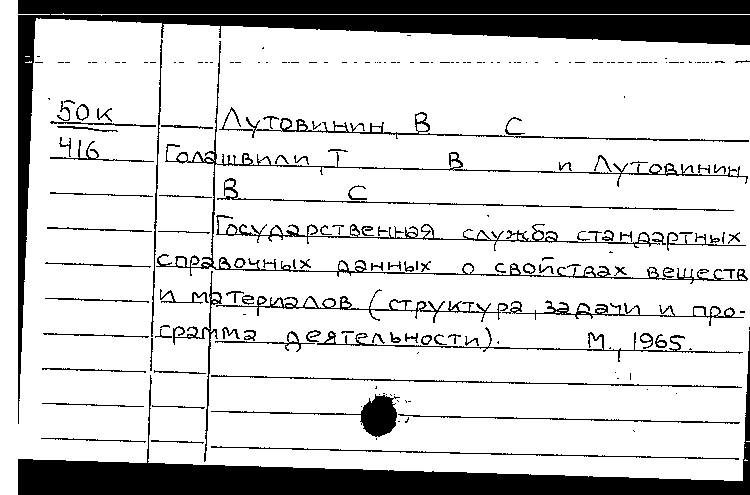 50К
Лутовинин, В С
416
Голашвили, Т В и Лутовинин,
В С
Государственная служба стандартных
справочных данных о свойствах веществ
и материалов (структура, задачи и про-
грамма деятельности). М., 1965.